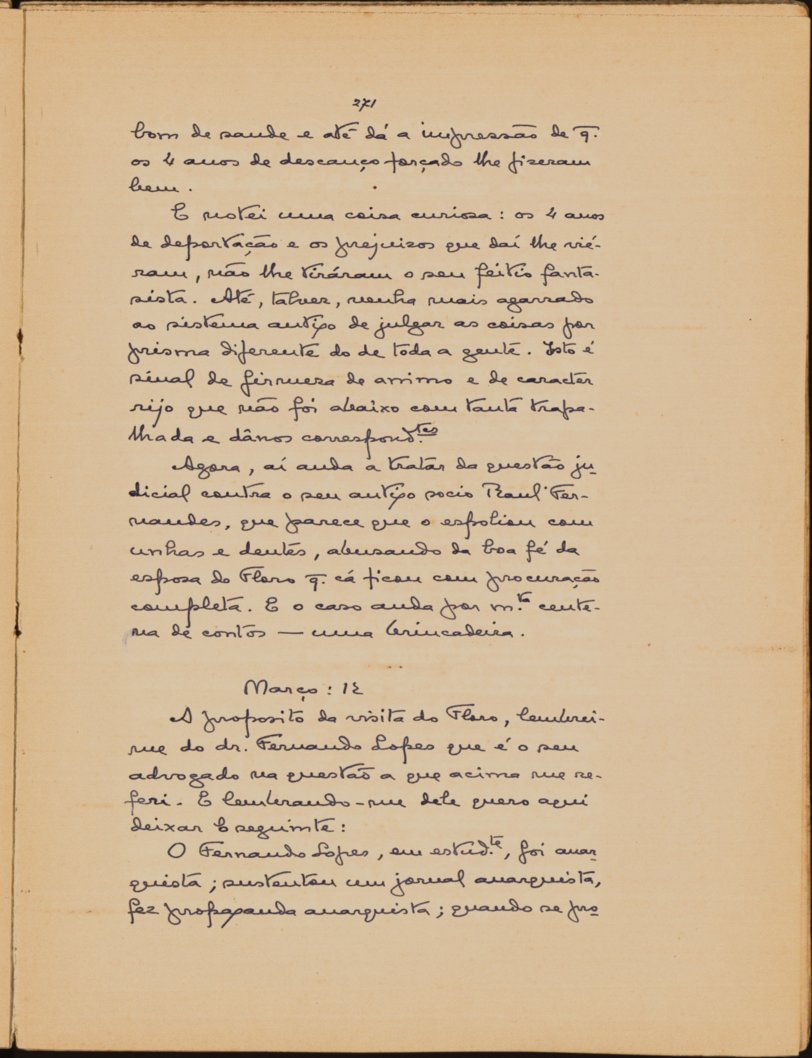 271
bom de saude e até dá a impressão de q̄.
os 4 anos de descanço forçado lhe fizeram
bem.
E notei uma coisa curiosa: os 4 anos
de deportação e os prejuizos que daí lhe vié-
ram, não lhe tiráram o seu feitio fanta-
sista. Até, talvez, venha mais agarrado
ao sistema antigo de julgar as coisas por
prisma diferente do de toda a gente. Isto é
sinal de firmeza de animo e de caracter
rijo que não foi abaixo com tanta trapa-
lhada e dânos correspond.tes
Agora, aí anda a tratar da questão ju-
dicial contra o seu antigo socio Raul Fer-
nandes, que parece que o espoliou com
unhas e dentes, abusando da boa fé da
esposa do Floro q̄. cá ficou com procuração
completa. E o caso anda por m.ta cente-
na de contos — uma brincadeira.
Março: 12
A proposito da visita do Floro, lembrei-
me do dr. Fernando Lopes que é o seu
advogado na questão a que acima me re-
feri. E lembrando-me dele quero aqui
deixar o seguinte:
O Fernando Lopes, em estud.te, foi anar-
quista; sustentou um jornal anarquista,
fez propaganda anarquista; quando se pro-